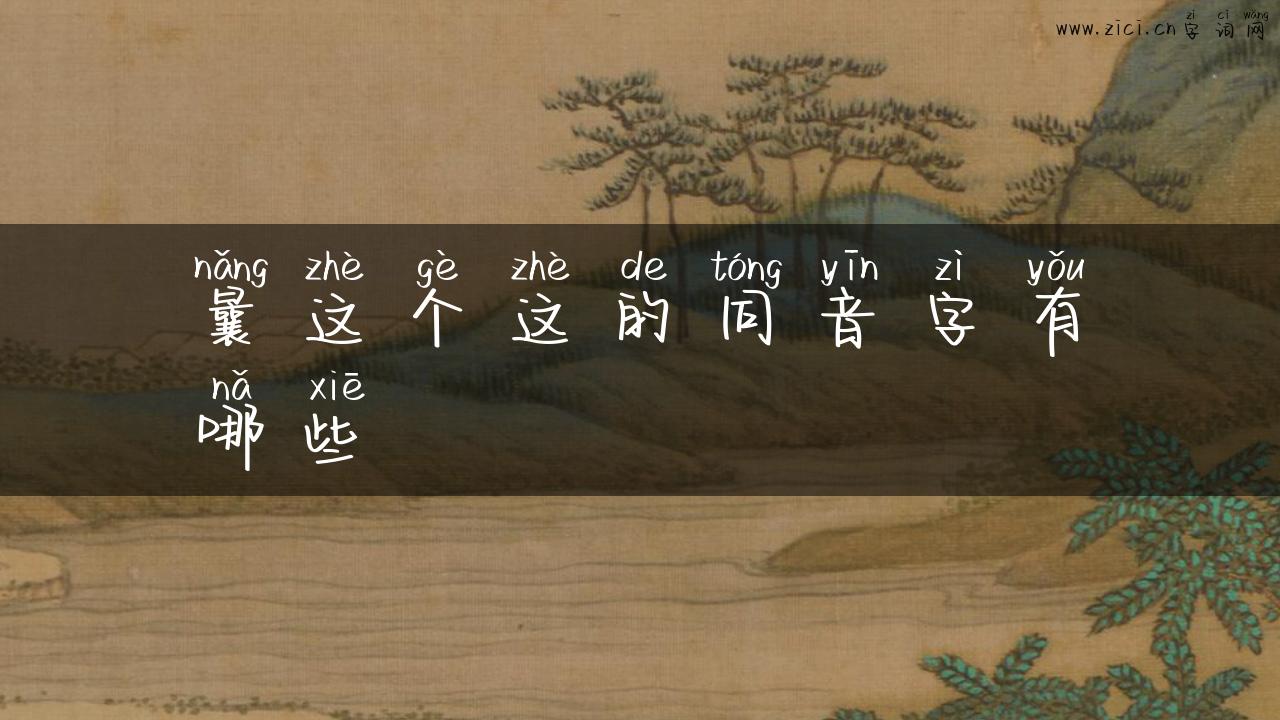 zì cí wǎng
www.zici.cn 字 词 网
nǎng zhè gè zhè de tóng yīn zì yǒu
曩 这 个 这 的 同 音 字 有
nǎ xiē
哪 些